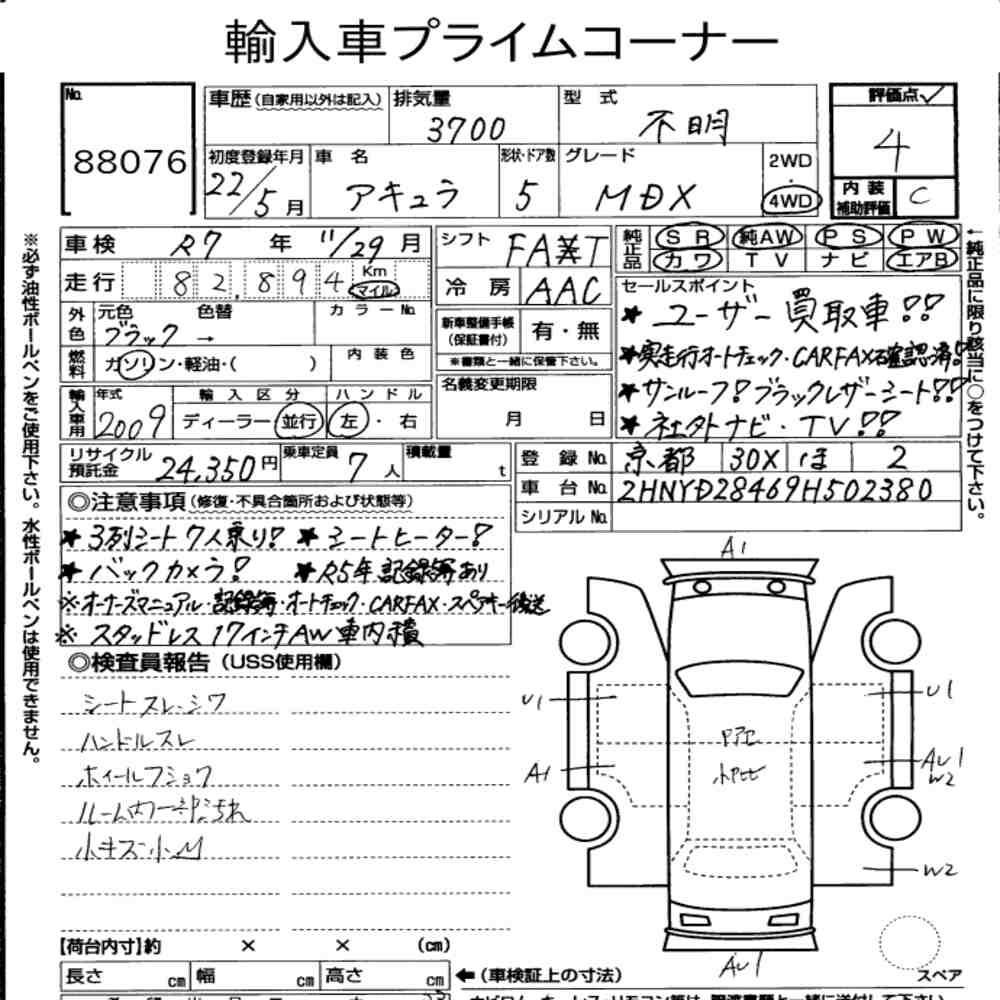 輸入車プライムコーナー
No. 88076
車歴(自家用以外は記入) 排気量 3700 型式 不明
初度登録年月 22/5月 車名 アキュラ 形状・ドア数 5 グレード MDX 2WD・4WD
評価点 4
内装補助評価 C
車検 R7年 11/29月
走行 82,894 Km マイル
外色 元色 ブラック → 色替 カラーNo.
燃料 ガソリン・軽油・( ) 内装色
輸入車用 年式 2009 輸入区分 ディーラー・並行 ハンドル 左・右
リサイクル預託金 24,350円 乗車定員 7人 積載量 t
シフト FAT
冷房 AAC
新車整備手帳(保証書付) 有・無
※書類と一緒に保管下さい。
名義変更期限 月 日
純正品 SR 純AW PS PW
カワ TV ナビ エアB
セールスポイント
★ユーザー買取車!!
★実走行オートチェック・CARFAX確認済!
★サンルーフ!ブラックレザーシート!!
★社外ナビ・TV!!
登録No. 京都 30X ほ 2
車台No. 2HNYD28469H502380
シリアルNo.
◎注意事項(修復・不具合箇所および状態等)
★3列シート7人乗り! ★シートヒーター!
★バックカメラ! ★R5年記録簿あり
※オーナーズマニュアル・記録簿・オートチェック・CARFAX・スペアキー後送
※スタッドレス17インチAW車内積
◎検査員報告(USS使用欄)
シートスレ・シワ
ハンドルスレ
ホイールフショク
ルーム内一部汚れ
小キズ・小凹
A1
U1
U1
A1
AU1
W2
W2
AU1
スペア
【荷台内寸】約 × × (cm)
長さ cm 幅 cm 高さ cm ←(車検証上の寸法)
※必ず油性ボールペンをご使用下さい。水性ボールペンは使用できません。
←純正品に限り該当に○をつけて下さい。